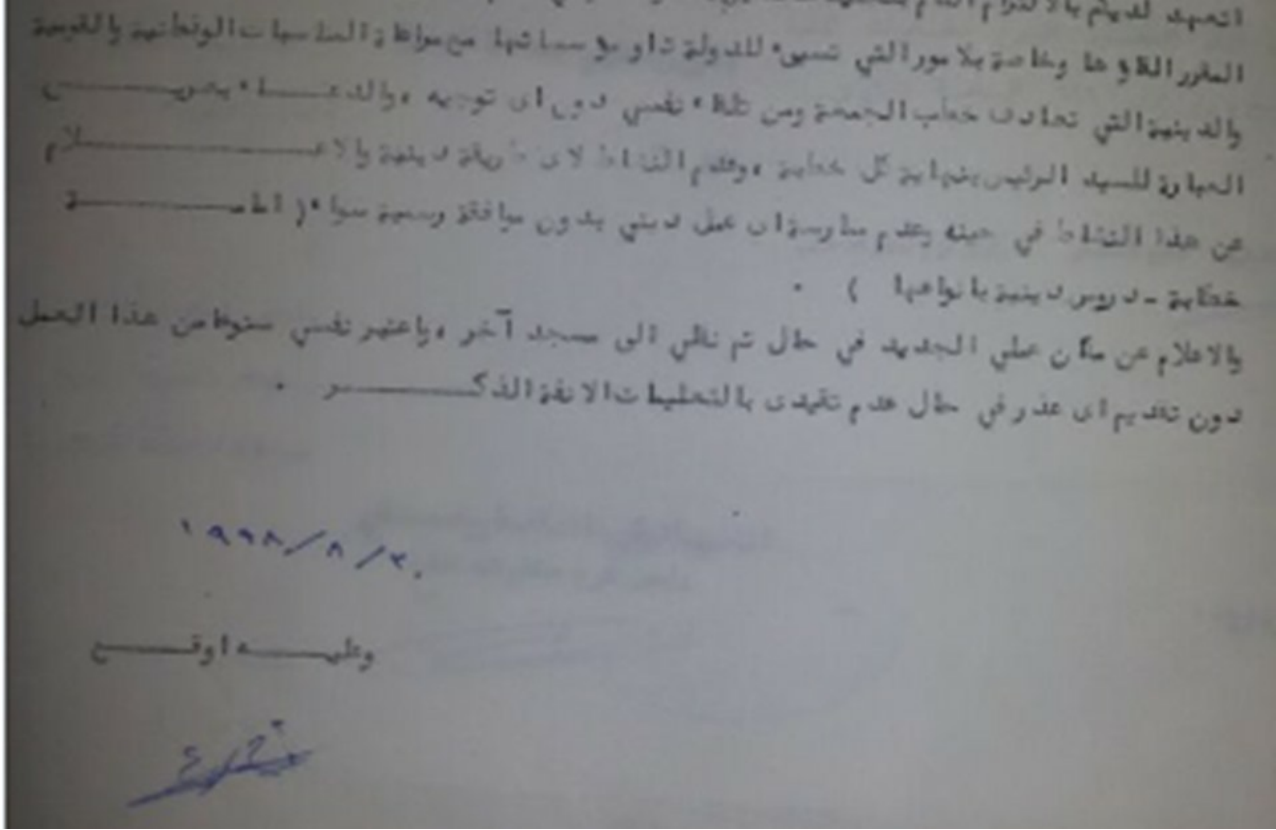 اتعهد لديكم بالالتزام التام
المقرر القاؤها وخاصة بلامور التي تسيء للدولة او مؤسساتها مع مراعاة المناسبات الوطنية والقومية
والدينية التي تصادف خطب الجمعة ومن تلقاء نفسي دون اى توجيه ، والدعـــاء بحريـــص
العبارة للسيد الرئيس بنهاية كل خطابة ، وعدم النشاط لاى طريقة دينية والاعـــــلام
عن هذا النشاط في حينه وعدم ممارسة اى عمل ديني بدون موافقة رسمية سواء ( امامـــة
خطابة - دروس دينية بانواعها ) .
والاعلام عن مكان عملي الجديد في حال تم نقلي الى مسجد آخر ، واعتبر نفسي ممنوعا من هذا العمل
دون تقديم اى عذر في حال عدم تقيدى بالتعليمات الانفة الذكـــر .
١٩٩٨/٨/٢٠
وعليـــه اوقـــع